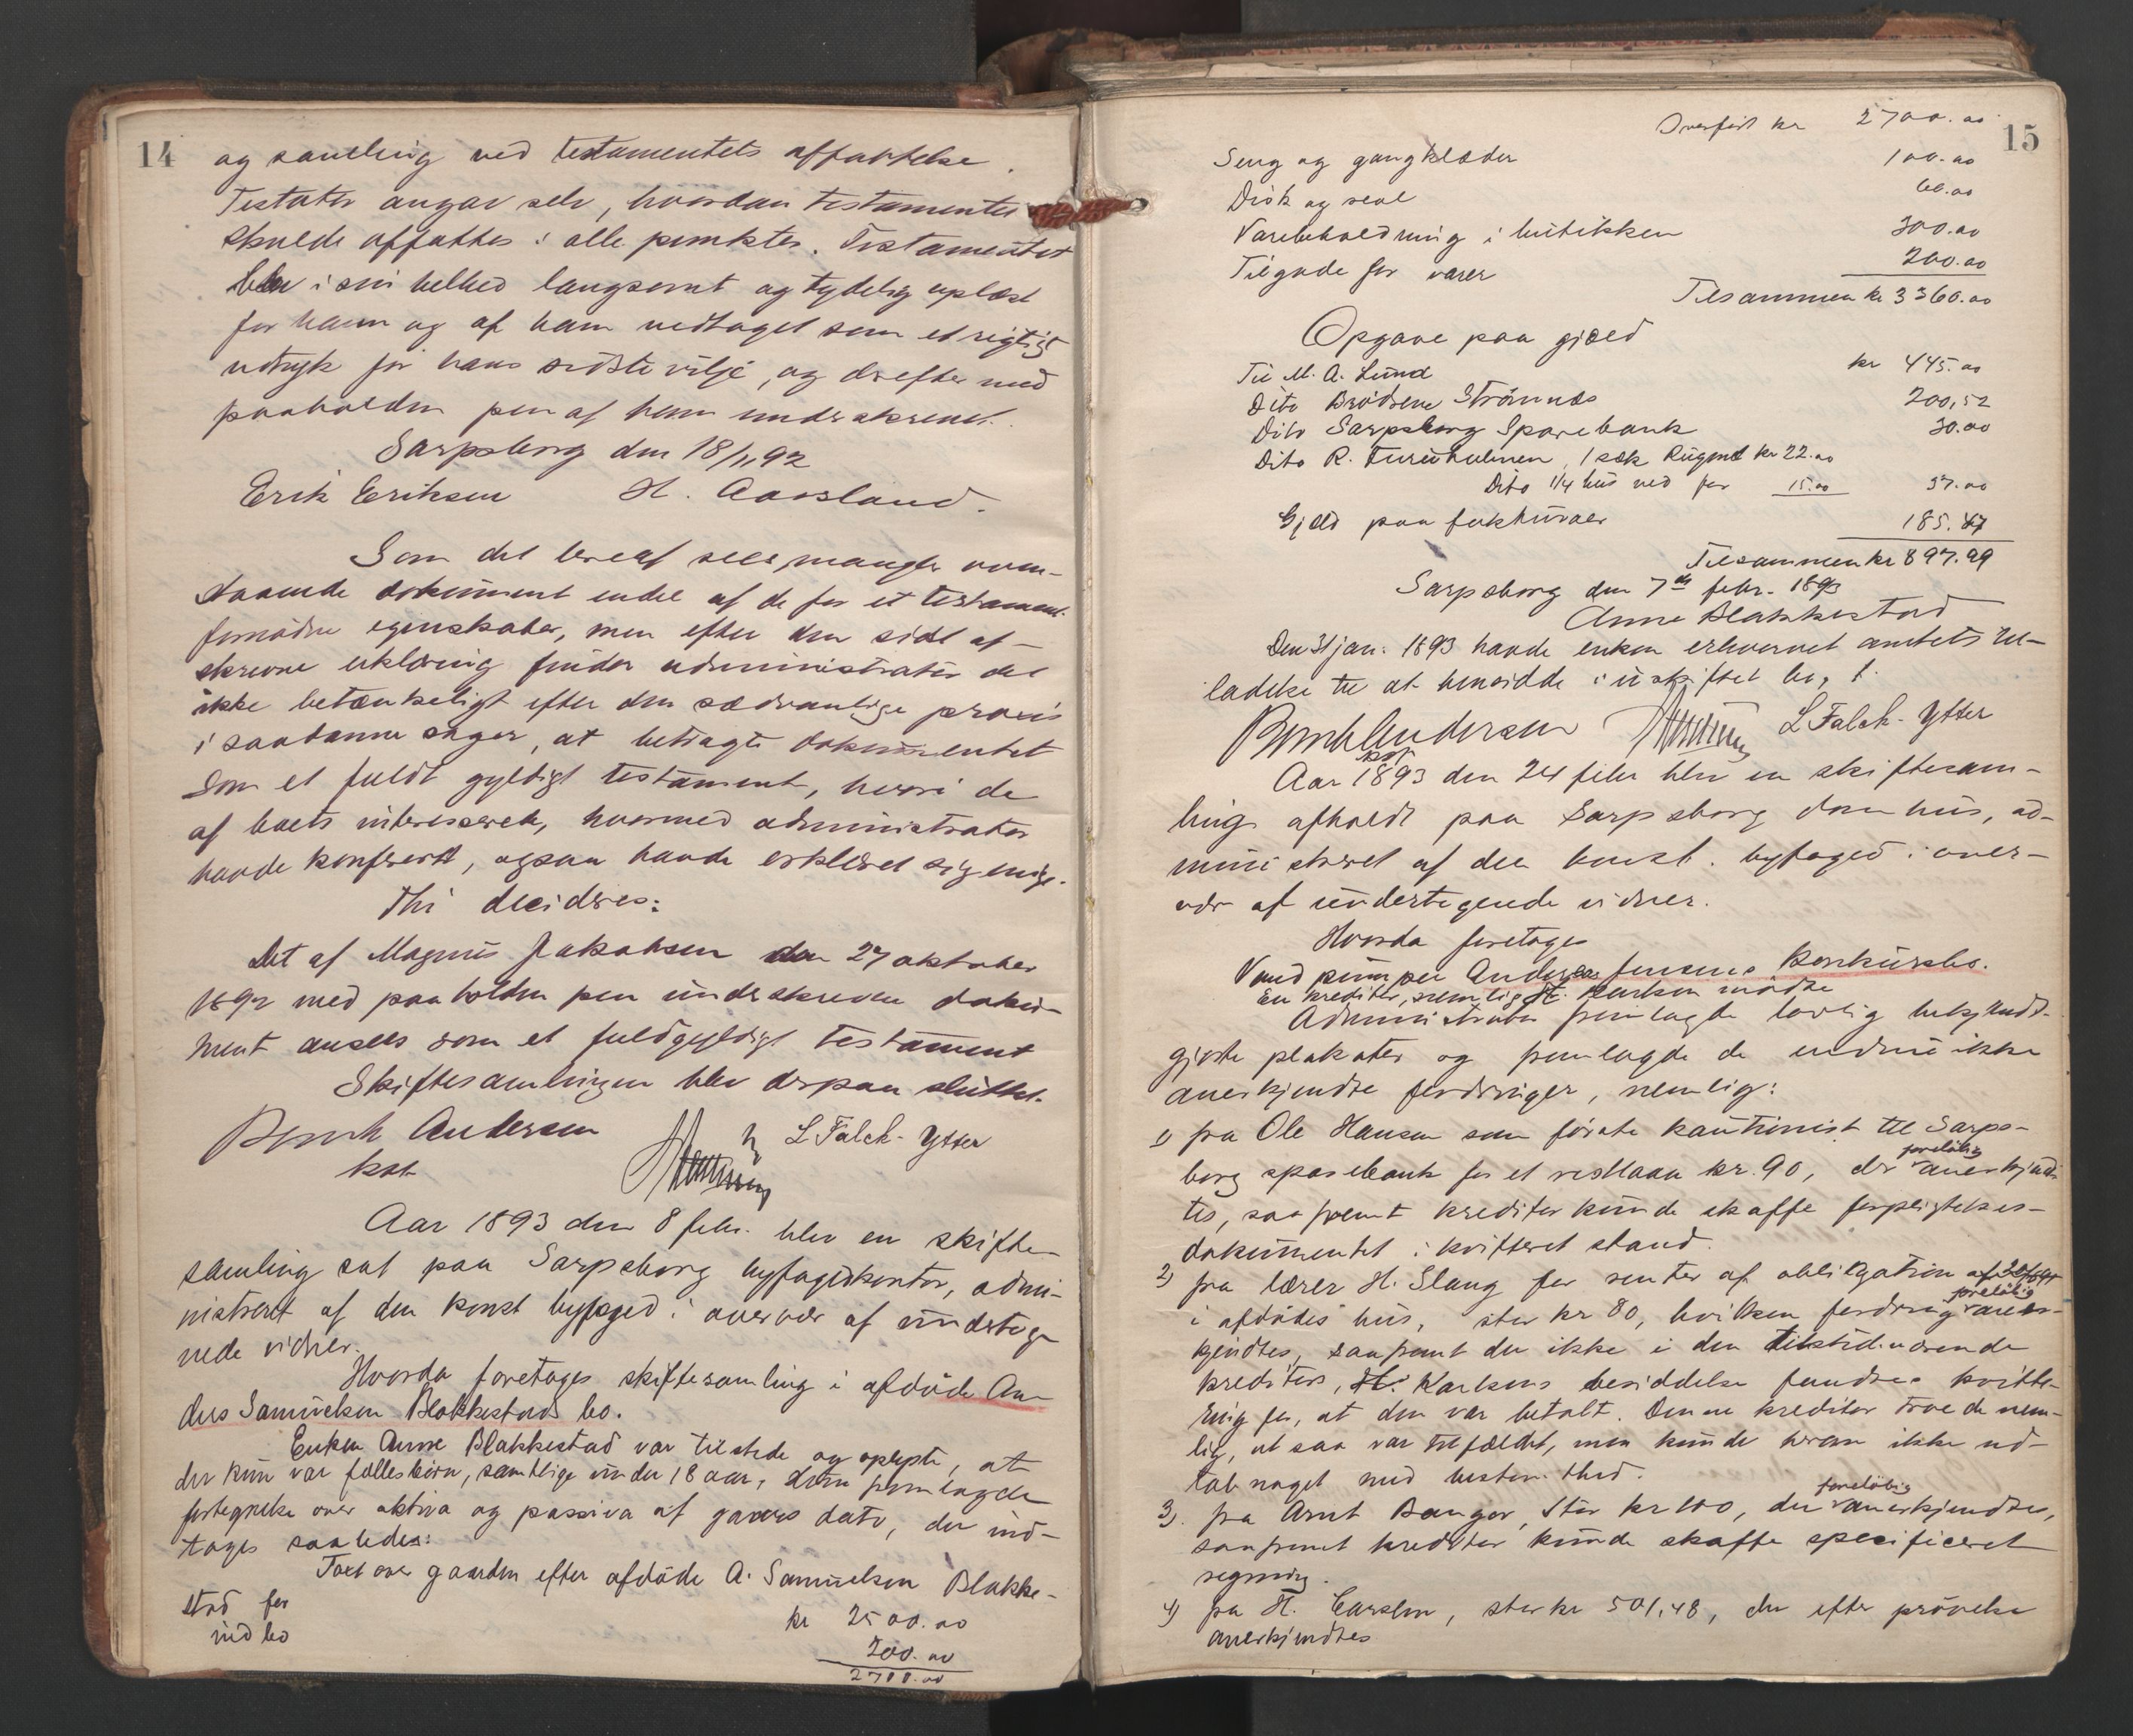 14
og samling ved testamentets affattelse.
Testator angav selv, hvordan testamentet
skulde affattes i alle punkter. Testamentet
blev i sin helhed langsomt og tydelig oplæst
for ham og af ham vedtaget som et rigtigt
udtryk for hans sidste vilje, og derefter med
paaholden pen af ham underskrevet.
Sarpsborg den 18/11 92
Erik Eriksen H. Aarsland.
Som det heraf sees, mangler oven-
staaende dokument endel af de for et testament
fornødne egenskaber, men efter den sidst af-
skrevne erklæring finder administrator det
ikke betænkeligt efter den sædvanlige praxis
i saadanne sager, at betragte dokumentet
som et fuldt gyldigt testament, hvori de
af boets interesserede, hvormed administrator
havde konfereret, ogsaa havde erklæret sig enige.
Thi decideres:
Det af Magnus Jakobsen den 27 oktober
1892 med paaholden pen underskrevne doku-
ment ansees som et fuldgyldigt testament
Skiftesamlingen blev derpaa sluttet.
Bernh Andersen L Falch-Ytter
kst
Aar 1893 den 8 febr. blev en skifte-
samling sat paa Sarpsborg byfogedkontor, admi-
nistreret af den konst byfoged i overvær af underteg-
nede vidner.
Hvorda foretoges skiftesamling i afdøde An-
ders Samuelsen Blakkestads bo.
Enken Anne Blakkestad var tilstede og oplyste, at
der kun var fællesbørn, samtlige under 18 aar, hun fremlagde
fortegnelse over aktiva og passiva af gaars dato, der ind-
tages saaledes:
Taxt over gaarden efter afdøde A. Samuelsen Blakke-
stad for kr 2500.00
indbo 200.00
2700.00
15
Overført kr 2700.00
Seng og gangklæder 100.00
Disk og reol 60.00
Varebeholdning i butikken 300.00
Tilgode for varer 200.00
Tilsammen kr 3360.00
Opgave paa gjæld
Til M. A. Lund kr 445.00
Dito Brødrene Strømnæs 200,52
Dito Sarpsborg Sparebank 30.00
Dito R. Furuholmen, 1 sæk Rugmel kr 22.00
Dito 1/4 hus ved for 15.00 37.00
Gjæld paa fakturaer 185.47
Tilsammen kr 897.99
Sarpsborg den 7de febr. 1893
Anne Blakkestad
Den 31 jan. 1893 havde enken erhvervet amtets til-
ladelse til at hensidde i uskiftet bo, f.
Bernh Andersen L Falch-Ytter
kst
Aar 1893 den 24 febr blev en skiftesam-
ling afholdt paa Sarpsborg domhus, ad-
ministreret af den konst. byfoged i over-
vær af undertegnede vidner.
Hvorda foretoges
Vandpumper Anders Jensens konkursbo.
En kreditor, nemlig H. Karlsen mødte
Administrator fremlagde lovlig bekjendt-
gjorte plakater og fremlagde de endnu ikke
anerkjendte fordringer, nemlig:
1) fra Ole Hansen som første kautionist til Sarps-
foreløbig
borg sparebank for et restlaan kr. 90, der anerkjend-
tes, saafremt kreditor kunde skaffe forpligtelses-
dokumentet i kvitteret stand.
2) fra lærer H. Slang for renter af obligation af
foreløbig
i afdødes hus, stor kr 80, hvilken fordring aner-
kjendtes, saafremt der ikke i den tilstedeværende
kreditors, H. Karlsens besiddelse fandtes kvitte-
ring for, at den var betalt. Denne kreditor troede nem-
lig, at saa var tilfældet, men kunde herom ikke ud-
tale noget med bestemthed.
foreløbig
3) fra Arnt Banger, stor kr 100, der anerkjendtes,
saafremt kreditor kunde skaffe specificeret
regning.
4) fra H. Carlsen, stor kr 501,48, der efter prøvelse
anerkjendtes